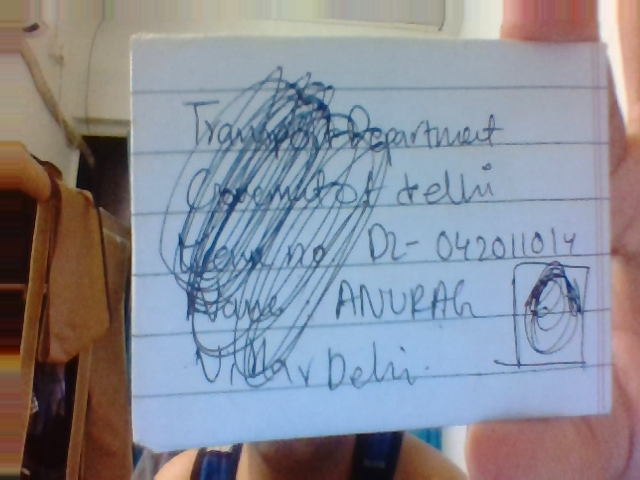 Transport Department
Government of delhi
no DL-042011014
Name ANURAG
Delhi